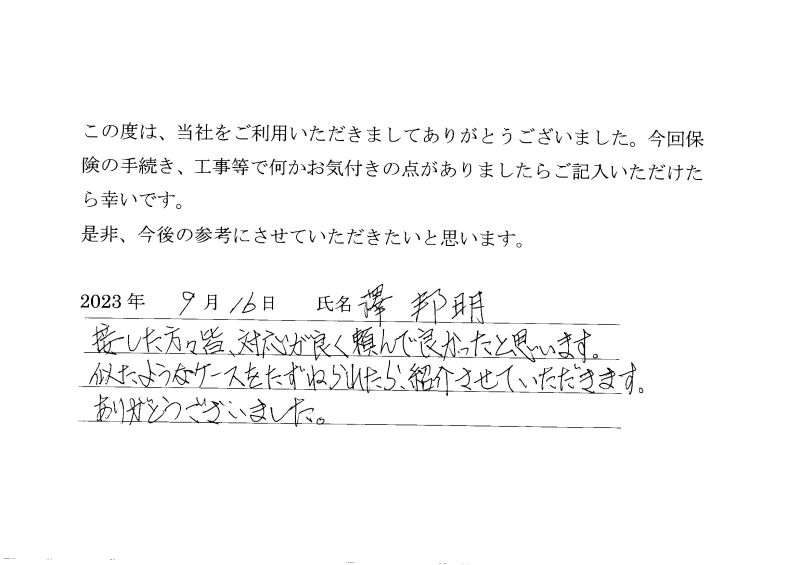 この度は、当社をご利用いただきましてありがとうございました。今回保
険の手続き、工事等で何かお気付きの点がありましたらご記入いただけた
ら幸いです。
是非、今後の参考にさせていただきたいと思います。
2023 年 9 月 16 日 氏名 澤 邦明
接した方々皆、対応が良く頼んで良かったと思います。
似たようなケースをたずねられたら、紹介させていただきます。
ありがとうございました。